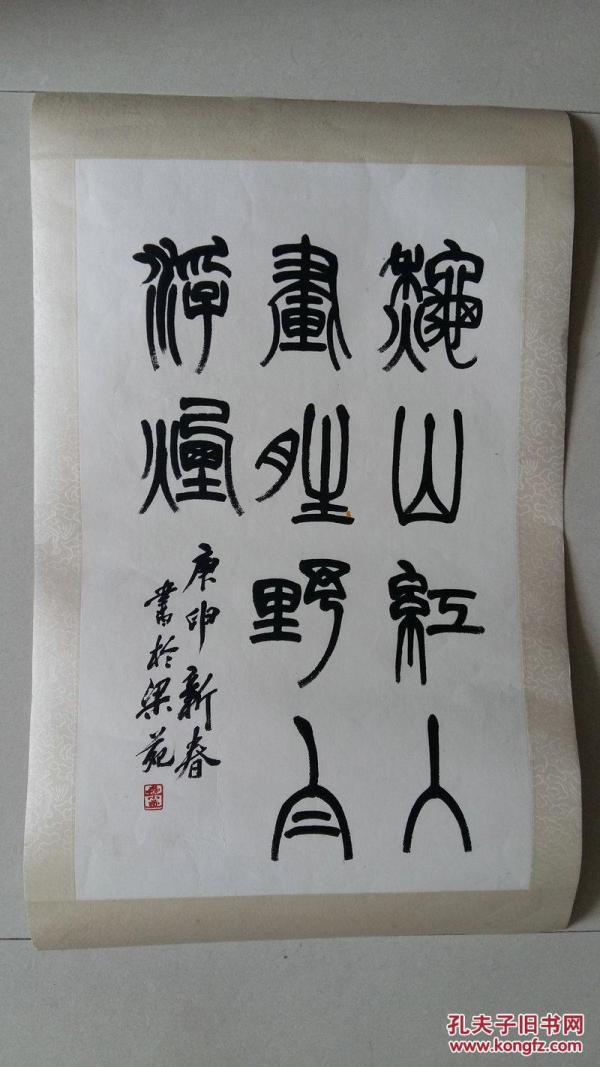 龝山紅入
畫夝野白
浮煙
庚申新春
書於梁苑
孔夫子旧书网
www.kongfz.com